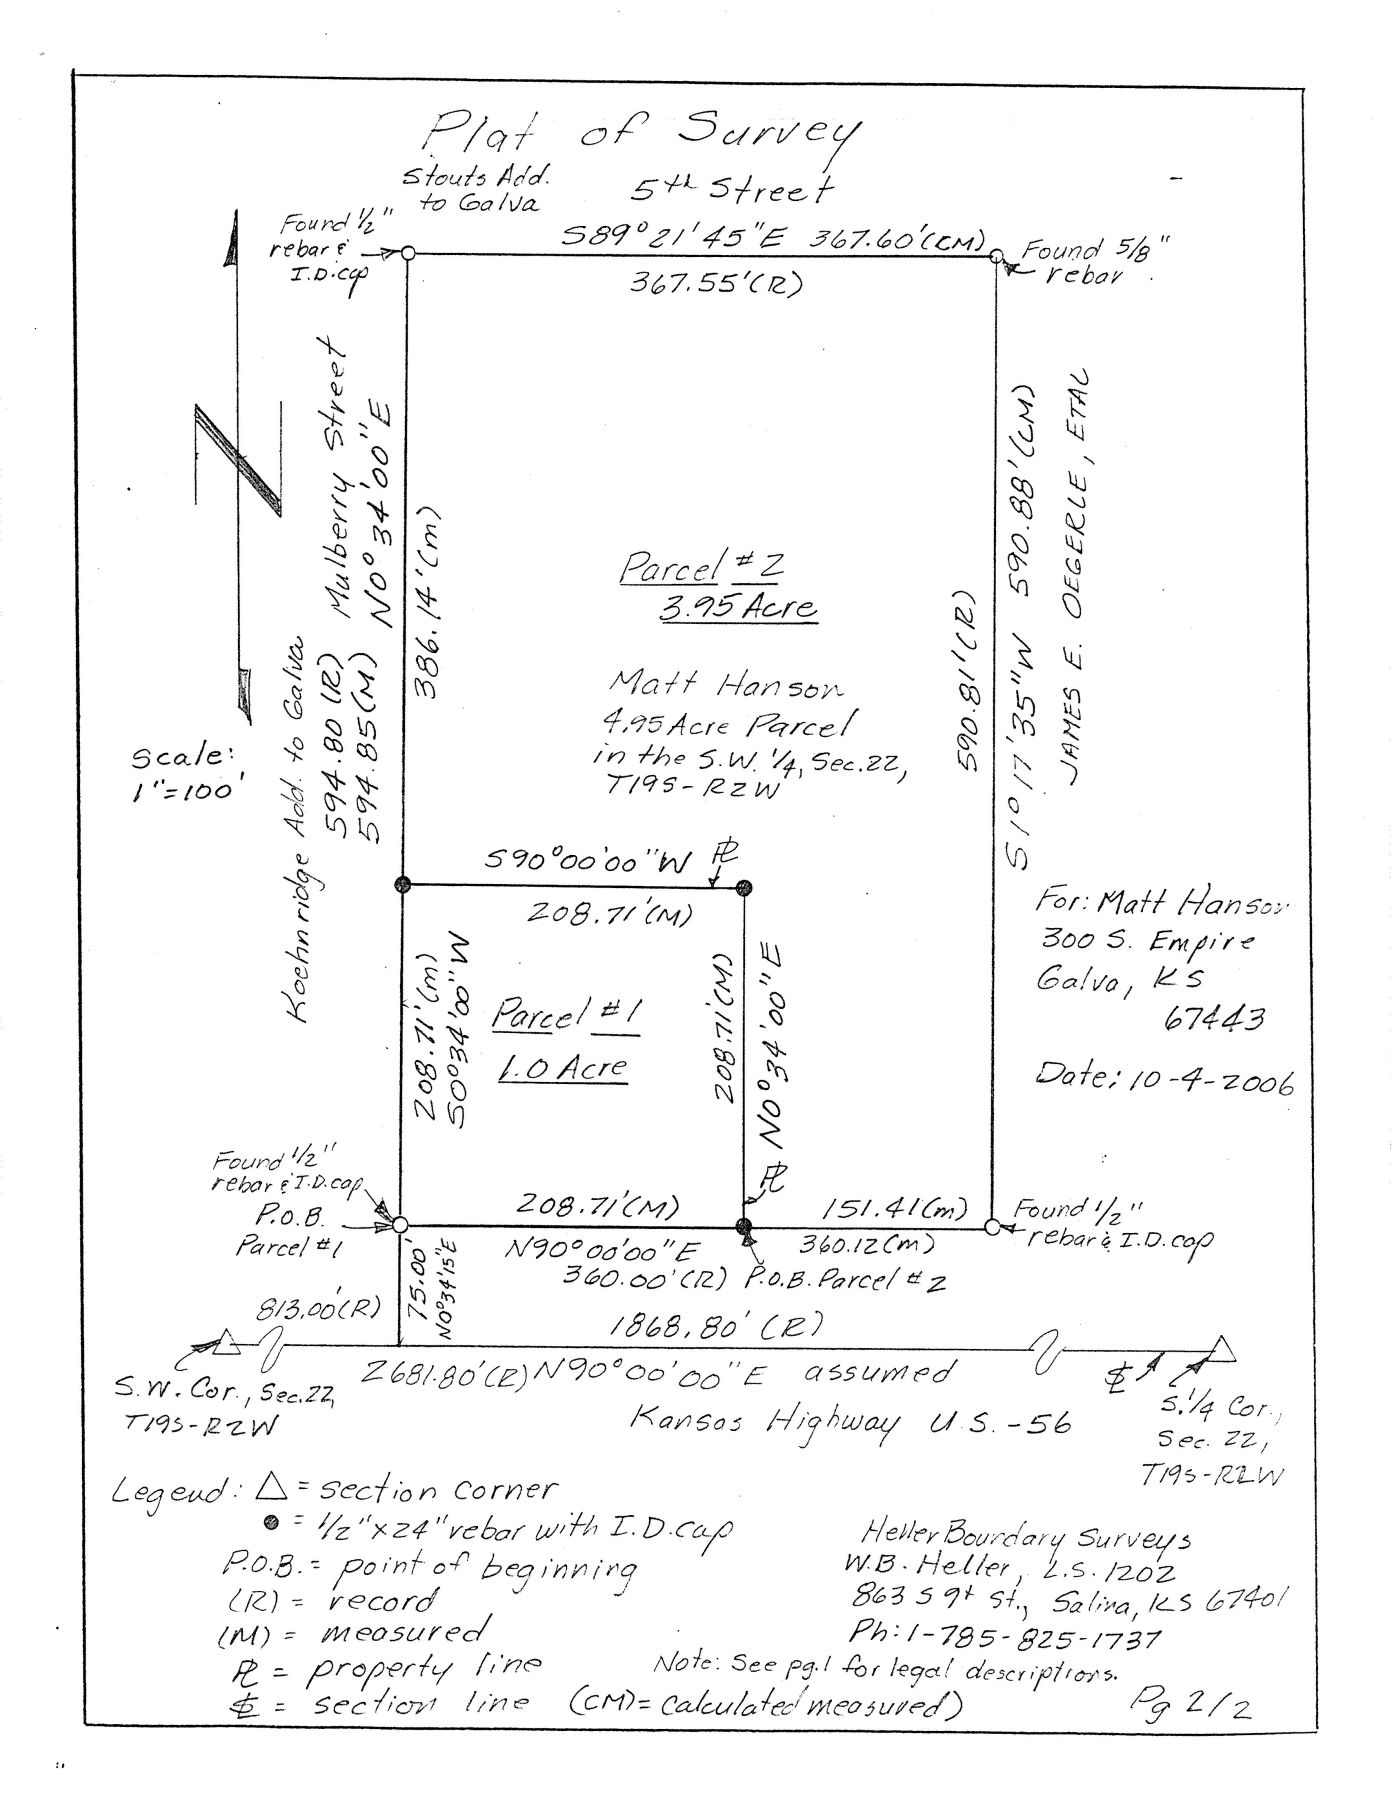 Plat of Survey
Stouts Add.
to Galva
5th Street
Found 1/2"
rebar &
I.D.cap
S89°21'45"E 367.60'(CM)
367.55'(R)
Found 5/8"
rebar
Mulberry Street
N0°34'00"E
386.14'(m)
594.80(R)
594.85(M)
Koehnridge Add. to Galva
Scale:
1"=100'
Parcel #2
3.95 Acre
Matt Hanson
4.95 Acre Parcel
in the S.W. 1/4, Sec.22,
T19S-R2W
590.81'(R)
S1°17'35"W 590.88'(CM)
JAMES E. OEGERLE, ETAL
S90°00'00"W PL
208.71'(M)
For: Matt Hanson
300 S. Empire
Galva, KS
67443
Date: 10-4-2006
208.71'(m)
S0°34'00"W
Parcel #1
1.0 Acre
208.71'(M)
N0°34'00"E
PL
Found 1/2"
rebar & I.D.cap
P.O.B.
Parcel #1
208.71'(M)
N90°00'00"E
360.00'(R)
151.41(m)
360.12(m)
P.O.B. Parcel #2
Found 1/2"
rebar & I.D.cap
75.00'
N0°34'15"E
813.00'(R)
1868.80' (R)
2681.80'(R) N90°00'00"E assumed
Kansas Highway U.S.-56
S.W. Cor., Sec.22,
T19S-R2W
S.1/4 Cor.,
Sec. 22,
T19S-R2W
Legend: △ = section corner
● = 1/2"x24" rebar with I.D.cap
P.O.B. = point of beginning
(R) = record
(M) = measured
PL = property line
= section line (CM)= calculated measured)
Heller Boundary Surveys
W.B. Heller, L.S. 1202
863 S 9th St., Salina, KS 67401
Ph: 1-785-825-1737
Note: See pg.1 for legal descriptions.
Pg 2/2